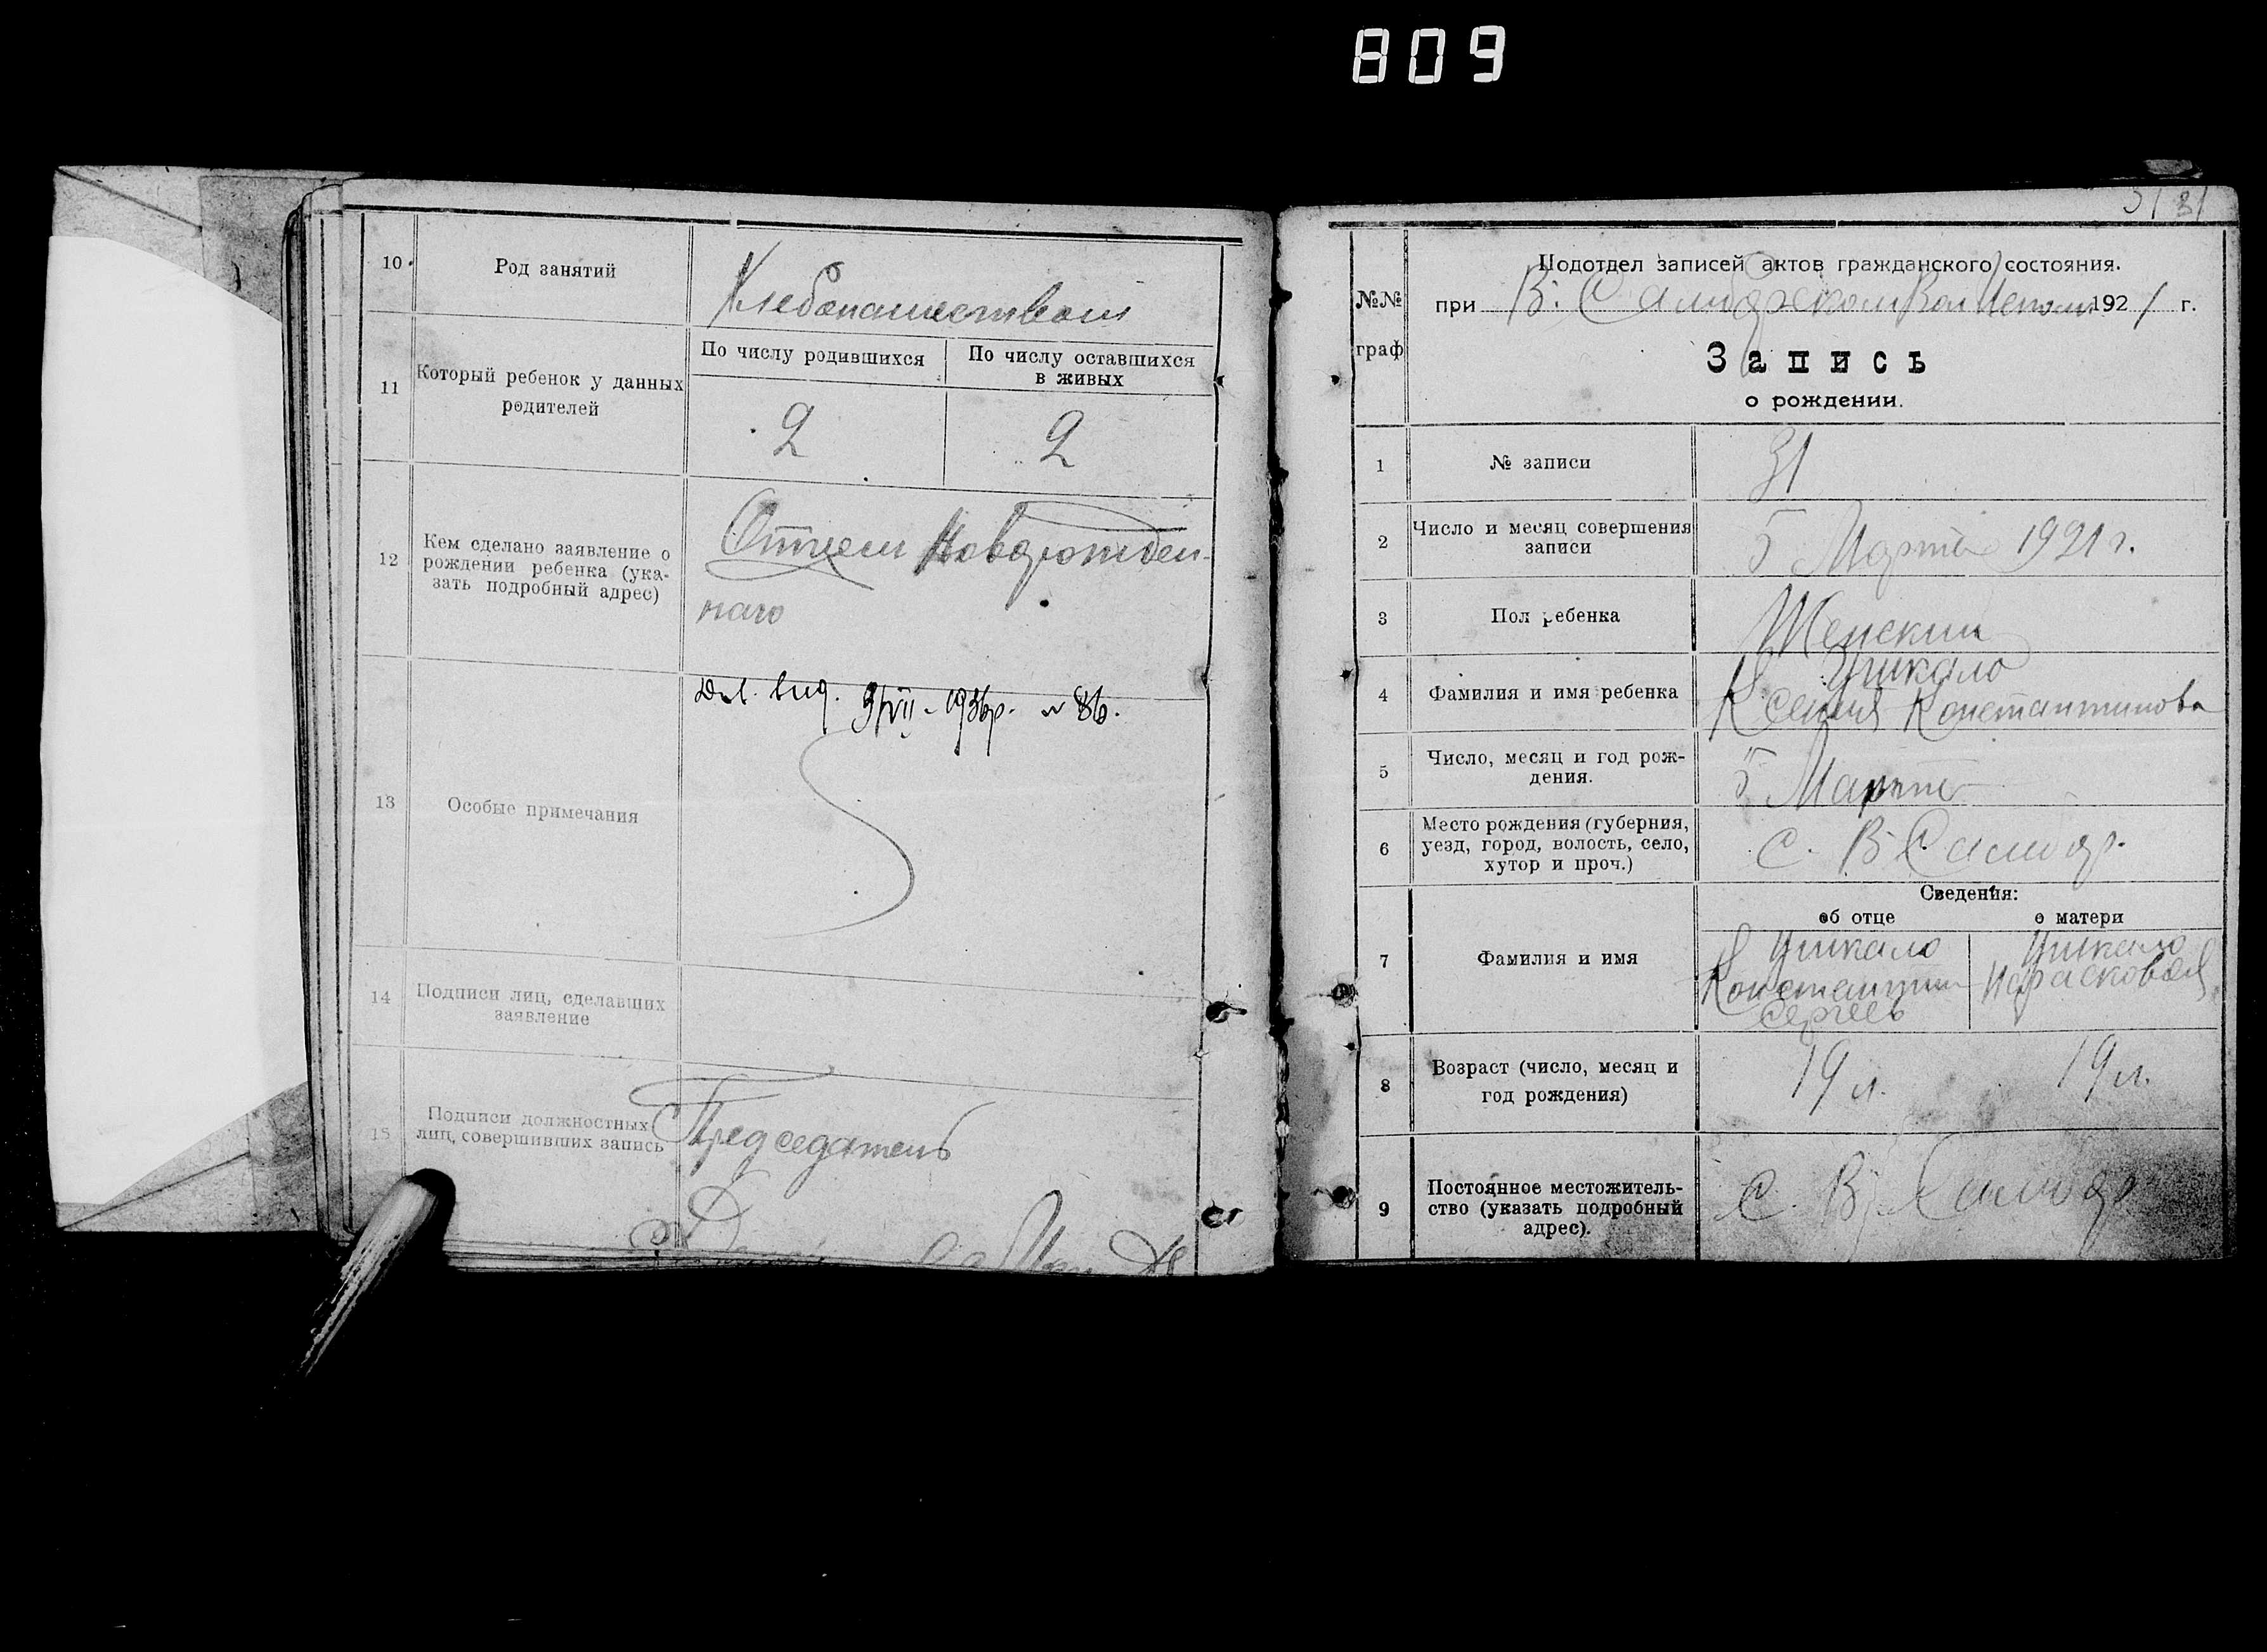 809
10
Род занятий
Хлебопашеством
11
Который ребенок у данных
родителей
По числу родившихся
По числу оставшихся
в живых
2
2
12
Кем сделано заявление о
рождении ребенка (ука-
зать подробный адрес)
Отцем Новорожден-
наго
13
Особые примечания
1936р. № 86.
14
Подписи лиц, сделавших
заявление
15
Подписи должностных
лиц, совершивших запись
Председатель
31 31
№№
граф
Подотдел записей актов гражданского состояния.
при В. Самбор 1921 г.
Запись
о рождении.
1
№ записи
31
2
Число и месяц совершения
записи
5 Марта 1921 г.
3
Пол ребенка
Женский
4
Фамилия и имя ребенка
Ксения Константинова
5
Число, месяц и год рож-
дения.
5 Марта
6
Место рождения (губерния,
уезд, город, волость, село,
хутор и проч.)
с. В.
7
Фамилия и имя
Сведения:
об отце
о матери
Константин
Сергеев
Парасковея
8
Возраст (число, месяц и
год рождения)
19 л.
19 л.
9
Постоянное местожитель-
ство (указать подробный
адрес).
с. В.